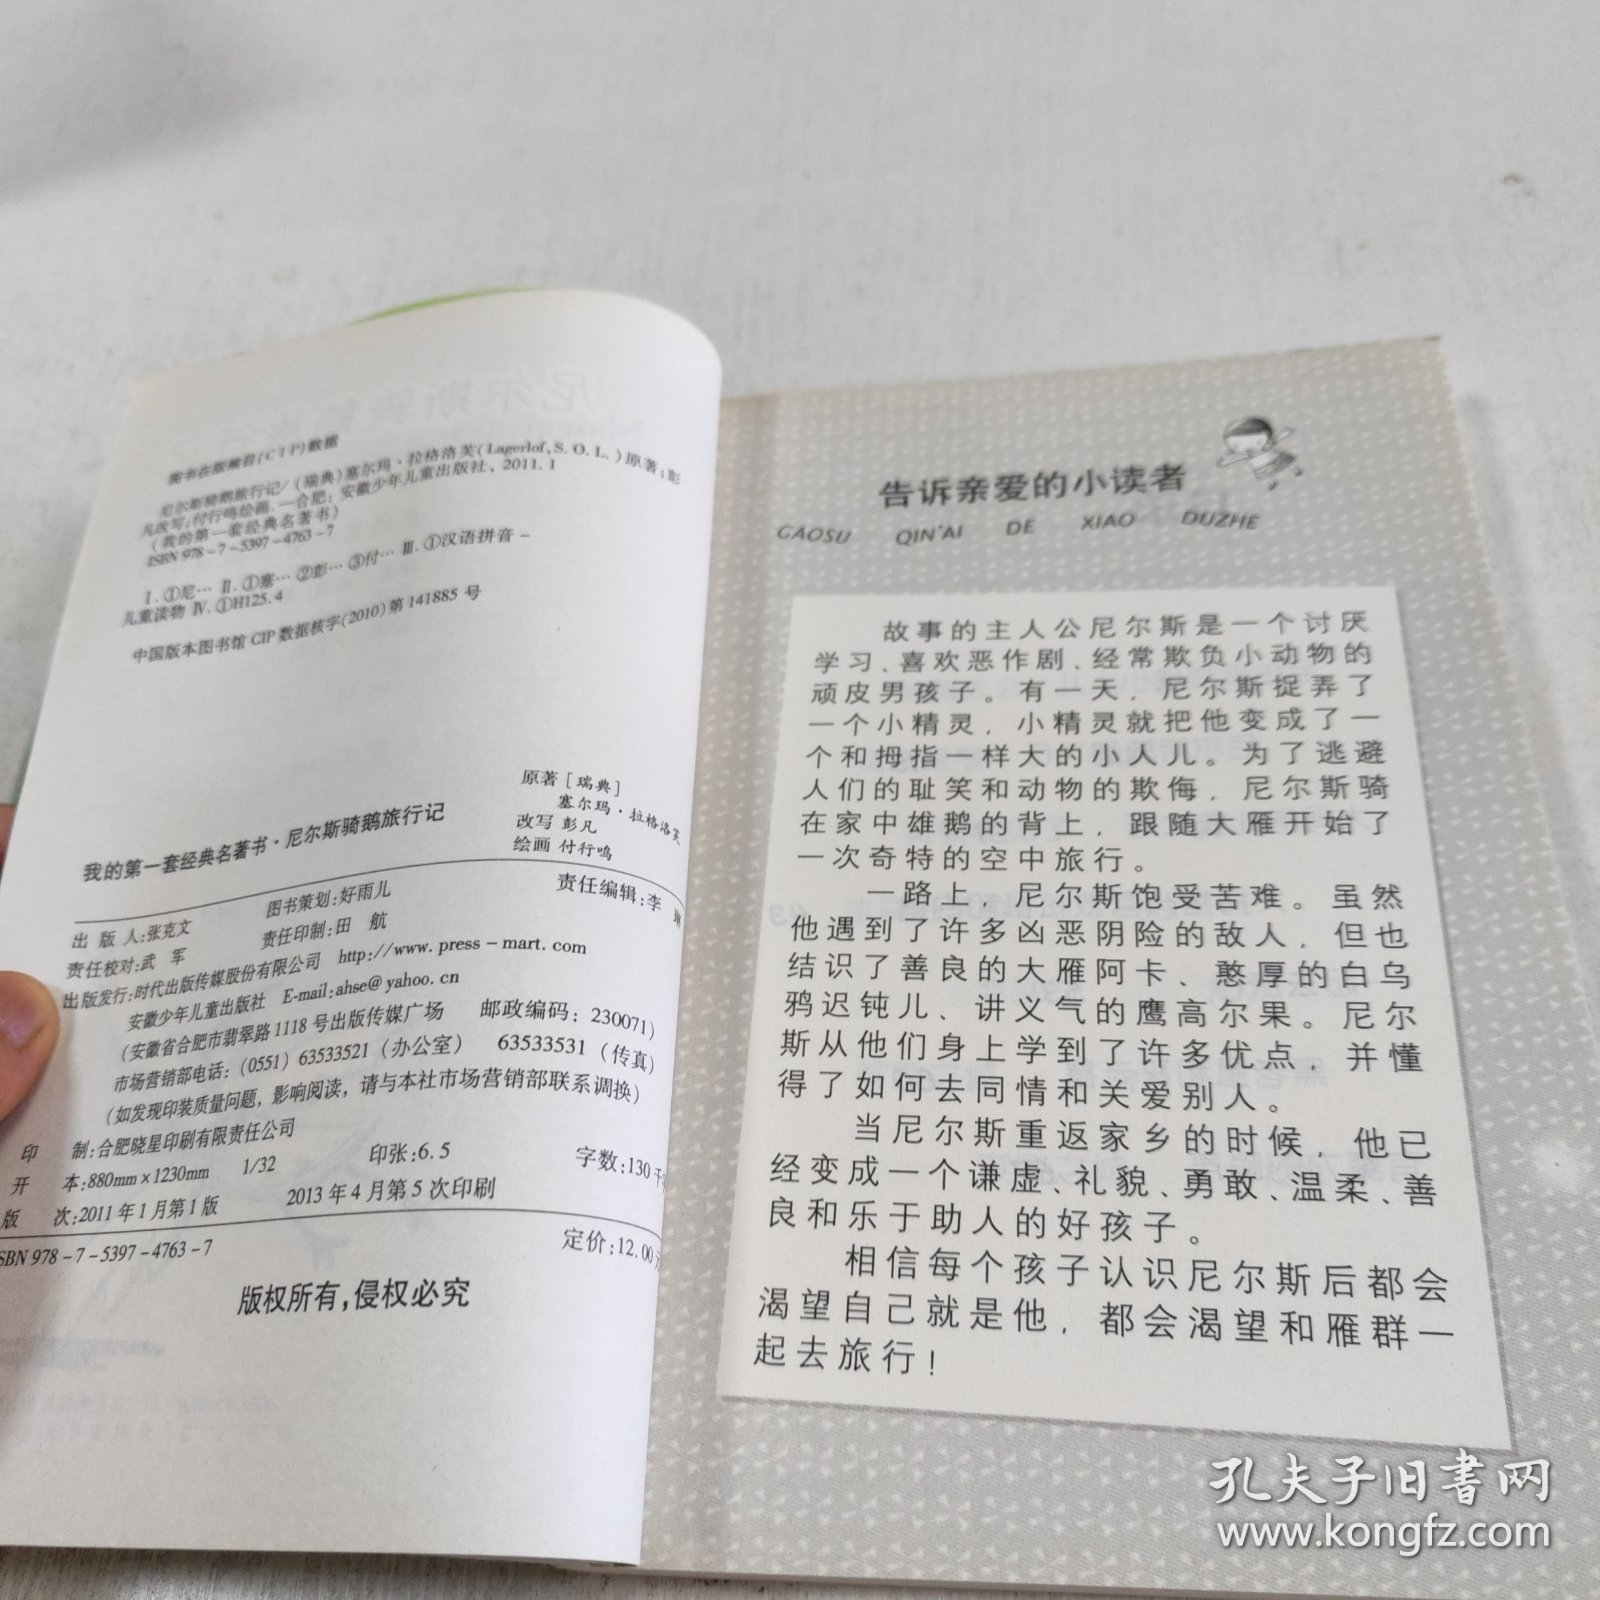 图书在版编目(CIP)数据
尼尔斯骑鹅旅行记/(瑞典)塞尔玛·拉格洛芙(Lagerlof,S.O.L.)原著;彭
凡改写;付行鸣绘画.—合肥:安徽少年儿童出版社,2011.1
(我的第一套经典名著书)
ISBN 978-7-5397-4763-7
Ⅰ.①尼… Ⅱ.①塞… ②彭… ③付… Ⅲ.①汉语拼音-
儿童读物 Ⅳ.①H125.4
中国版本图书馆CIP数据核字(2010)第141885号
我的第一套经典名著书·尼尔斯骑鹅旅行记
原著[瑞典]
塞尔玛·拉格洛芙
改写 彭凡
绘画 付行鸣
出 版 人:张克文 图书策划:好雨儿 责任编辑:李
责任校对:武 军 责任印制:田 航
出版发行:时代出版传媒股份有限公司 http://www.press-mart.com
安徽少年儿童出版社 E-mail:ahse@yahoo.cn
(安徽省合肥市翡翠路1118号出版传媒广场 邮政编码:230071)
市场营销部电话:(0551)63533521(办公室) 63533531(传真)
(如发现印装质量问题,影响阅读,请与本社市场营销部联系调换)
印 制:合肥晓星印刷有限责任公司
开 本:880mm×1230mm 1/32 印张:6.5 字数:130千
版 次:2011年1月第1版 2013年4月第5次印刷
SBN 978-7-5397-4763-7 定价:12.00元
版权所有,侵权必究
告诉亲爱的小读者
GAOSU QIN'AI DE XIAO DUZHE
故事的主人公尼尔斯是一个讨厌
学习、喜欢恶作剧、经常欺负小动物的
顽皮男孩子。有一天,尼尔斯捉弄了
一个小精灵,小精灵就把他变成了一
个和拇指一样大的小人儿。为了逃避
人们的耻笑和动物的欺侮,尼尔斯骑
在家中雄鹅的背上,跟随大雁开始了
一次奇特的空中旅行。
一路上,尼尔斯饱受苦难。虽然
他遇到了许多凶恶阴险的敌人,但也
结识了善良的大雁阿卡、憨厚的白乌
鸦迟钝儿、讲义气的鹰高尔果。尼尔
斯从他们身上学到了许多优点,并懂
得了如何去同情和关爱别人。
当尼尔斯重返家乡的时候,他已
经变成一个谦虚、礼貌、勇敢、温柔、善
良和乐于助人的好孩子。
相信每个孩子认识尼尔斯后都会
渴望自己就是他,都会渴望和雁群一
起去旅行!
孔夫子旧书网
www.kongfz.com